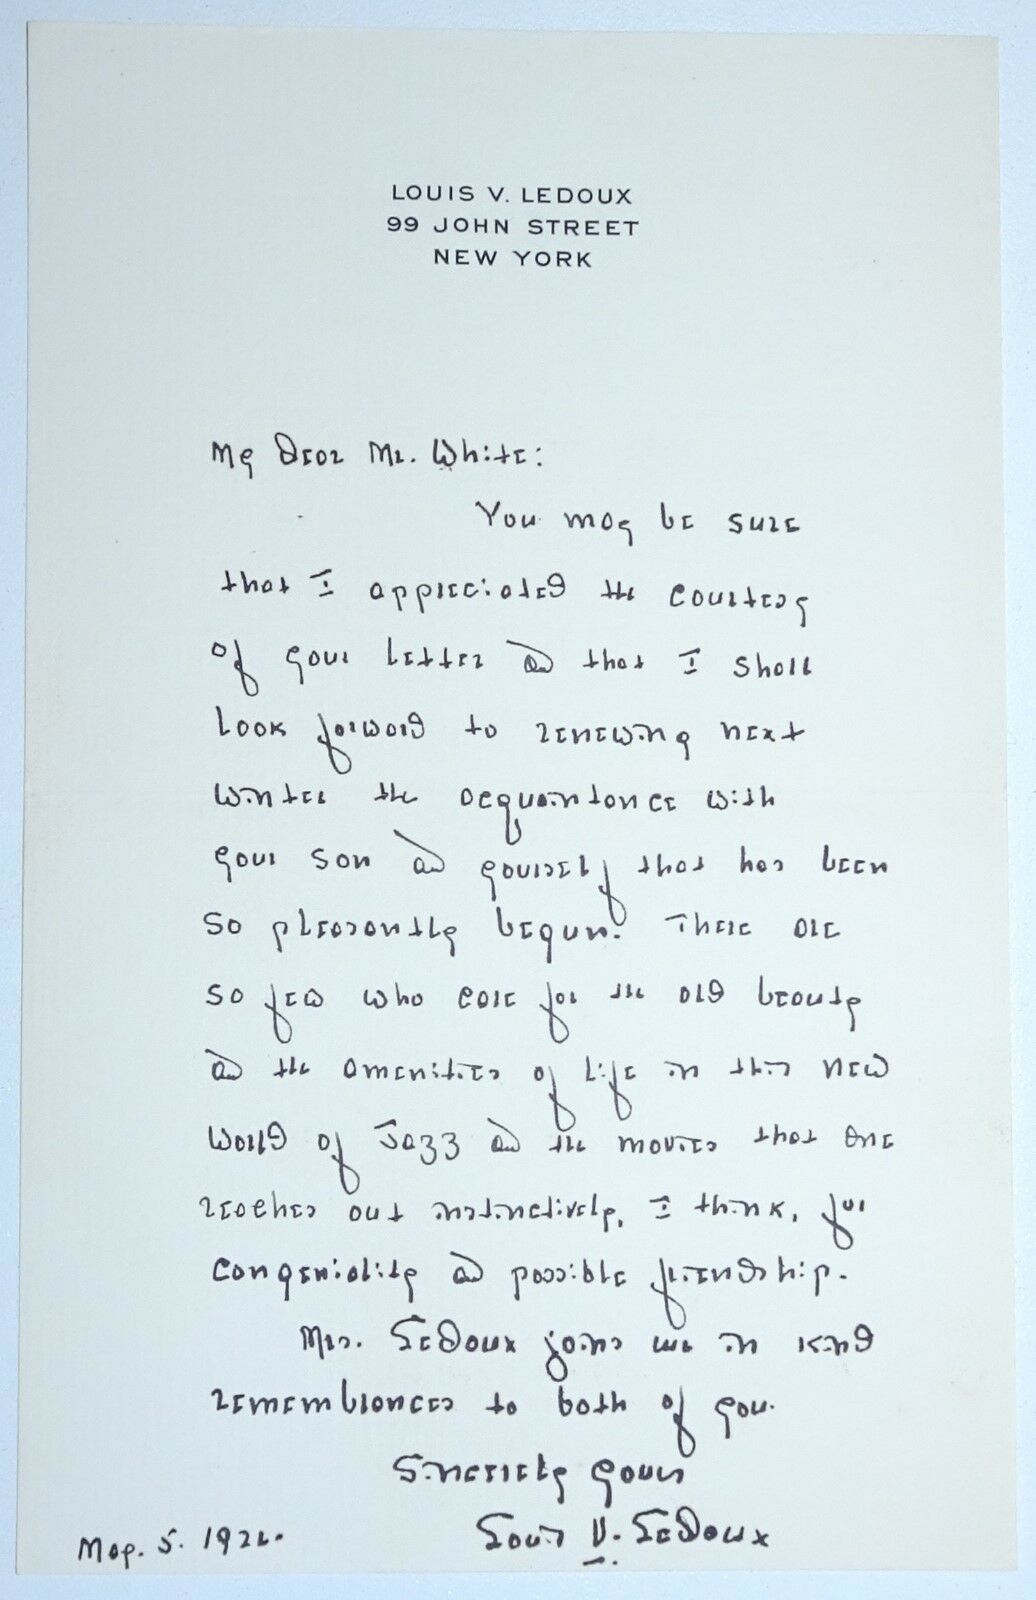 LOUIS V. LEDOUX
99 JOHN STREET
NEW YORK
My dear Mr. White:
You may be sure
that I appreciated the courtesy
of your letter and that I shall
look forward to renewing next
winter the acquaintance with
your son and yourself that has been
so pleasantly begun. There are
so few who care for the old beauty
and the amenities of life in this new
world of Jazz and the movies that one
reaches out instinctively, I think, for
congeniality and possible friendship.
Mrs. LeDoux joins me in kind
remembrances to both of you.
Sincerely yours
Louis V. LeDoux
May. 5. 192